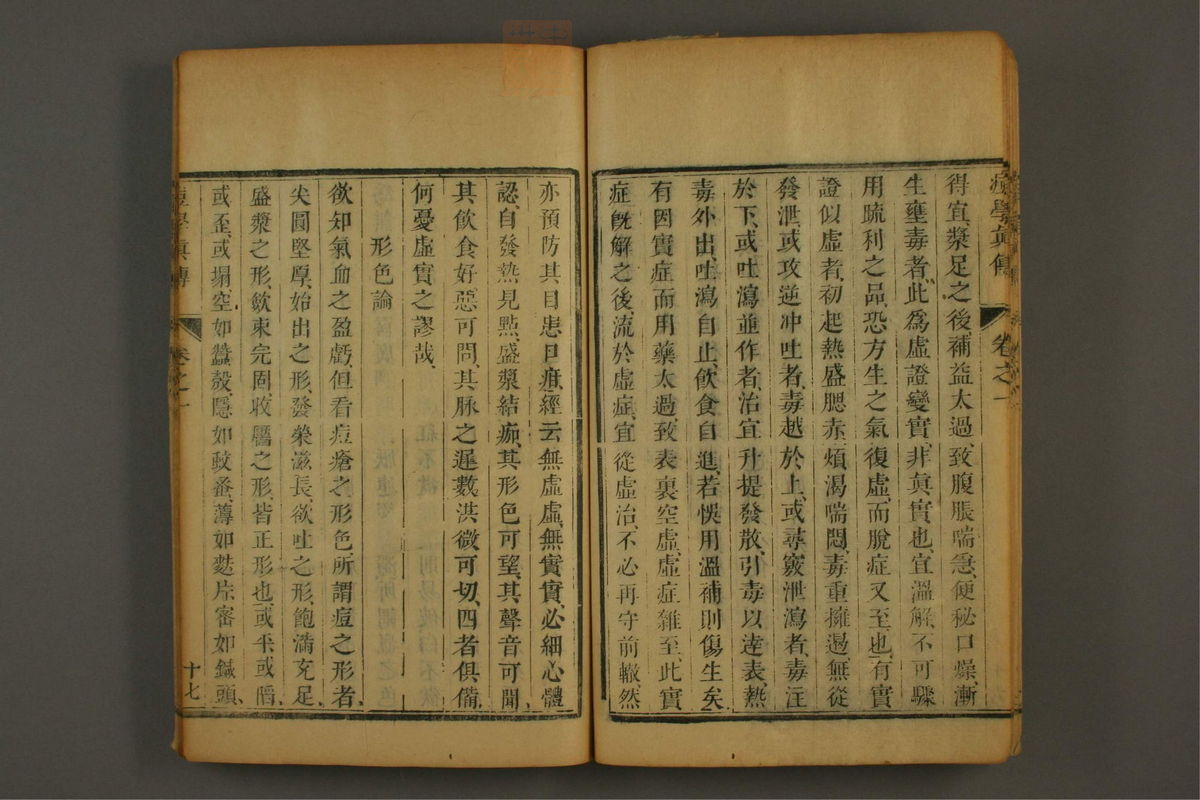 痘學眞傳 卷之一
得宜漿足之後補益太過致腹脹喘急便秘口燥漸
生壅毒者此爲虛證變實非眞實也宜溫解不可驟
用疏利之品恐方生之氣復虛而脫症又至也有實
證似虛者初起熱盛腮赤煩渴喘悶毒重擁遏無從
發泄或攻逆冲吐者毒越於上或尋竅泄瀉者毒注
於下或吐瀉並作者治宜升提發散引毒以達表熱
毒外出吐瀉自止飮食自進若悞用溫補則傷生矣
有因實症而用藥太過致表裏空虛虛症雜至此實
症旣解之後流於虛症宜從虛治不必再守前轍然
亦預防其目患口疳經云無虛虛無實實必細心體
認自發熱見點盛漿結痂其形色可望其聲音可聞
其飮食好惡可問其脉之遲數洪微可切四者俱備
何憂虛實之謬哉
形色論
欲知氣血之盈虧但看痘瘡之形色所謂痘之形者
尖圓堅厚始出之形發榮滋長欲吐之形飽滿充足
盛漿之形歛束完固收靨之形皆正形也或平或陷
或歪或塌空如蠶殼隱如蚊蚤薄如麩片密如鍼頭
痘學眞傳 卷之一 十七